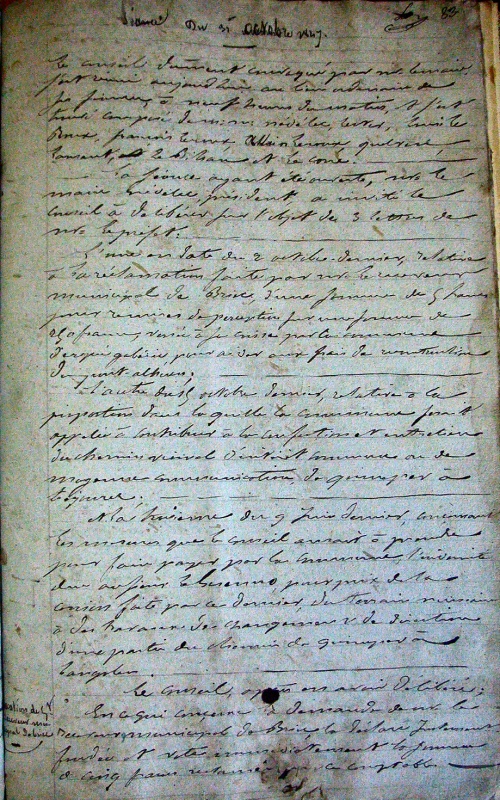 Séance Du 31 octobre 1847 83
Le conseil dûment convoqué par mr le maire
s'est réuni aujourd'hui au lieu ordinaire de
ses séances, à neuf heures du matin, et s'est
trouvé composé de mm nédélec,
françois
et le
La séance ayant été ouverte, mr le
maire nédélec, président, a invité le
conseil à délibérer sur l'objet de 3 lettres de
mr le préfet.
L'une en date du 2 octobre dernier, relative
à la réclamation faite par mr le receveur
municipal de Briec, d'une somme de 5 francs
pour remises de perception sur une somme de
250 francs, versée à sa caisse par la commune
d'ergué gabéric, pour aider aux frais de construction
du pont
L'autre du 15 octobre dernier, relative à la
proportion dans laquelle la commune serait
appelée à contribuer à la confection et entretien
du chemin vicinal d'intérêt commun ou de
moyenne communication de quimper à
Et la troisième du 9 juin dernier, concernant
les mesures que le conseil aurait à prendre
pour faire payer par la commune l'indemnité
due au sieur pour prix de la
cession faite par ce dernier, du terrain nécessaire
à des travaux de changement de direction
d'une partie du chemin de quimper à
Langolen
Le conseil, après en avoir délibéré;
En ce qui concerne la demande de mr le
receveur municipal de Briec, la déclare justement
fondée et vote immédiatement la somme
de cinq francs réclamée par ce comptable.